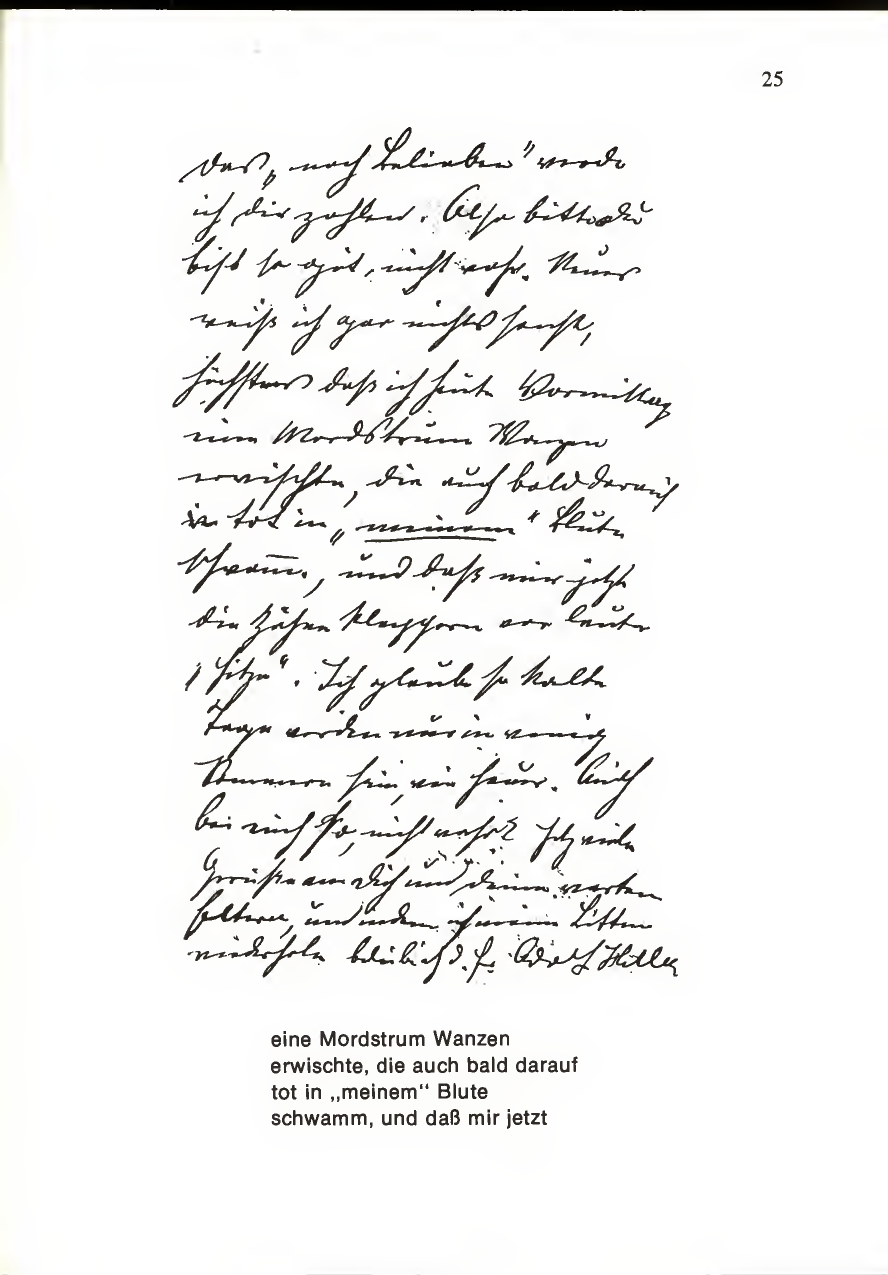 25
das „nach Belieben" werde
ich dir zahlen. Also bitte du
bist so gut, nicht wahr. Neues
weiß ich gar nichts sonst,
höchstens daß ich heute Vormittag
eine Mordstrum Wanzen
erwischte, die auch bald darauf
tot in „meinem" Blute
schwamm, und daß mir jetzt
die Zähne klappern vor lauter
„Hitze". Ich glaube so kalte
Tage werden nur in wenig
Sommern sein, wie heuer. Auch
bei euch so, nicht wahr?
Grüße an dich und deine werten
Eltern, und indem ich meine Bitten
wiederhole Adolf Hitler
eine Mordstrum Wanzen
erwischte, die auch bald darauf
tot in „meinem“ Blute
schwamm, und daß mir jetzt